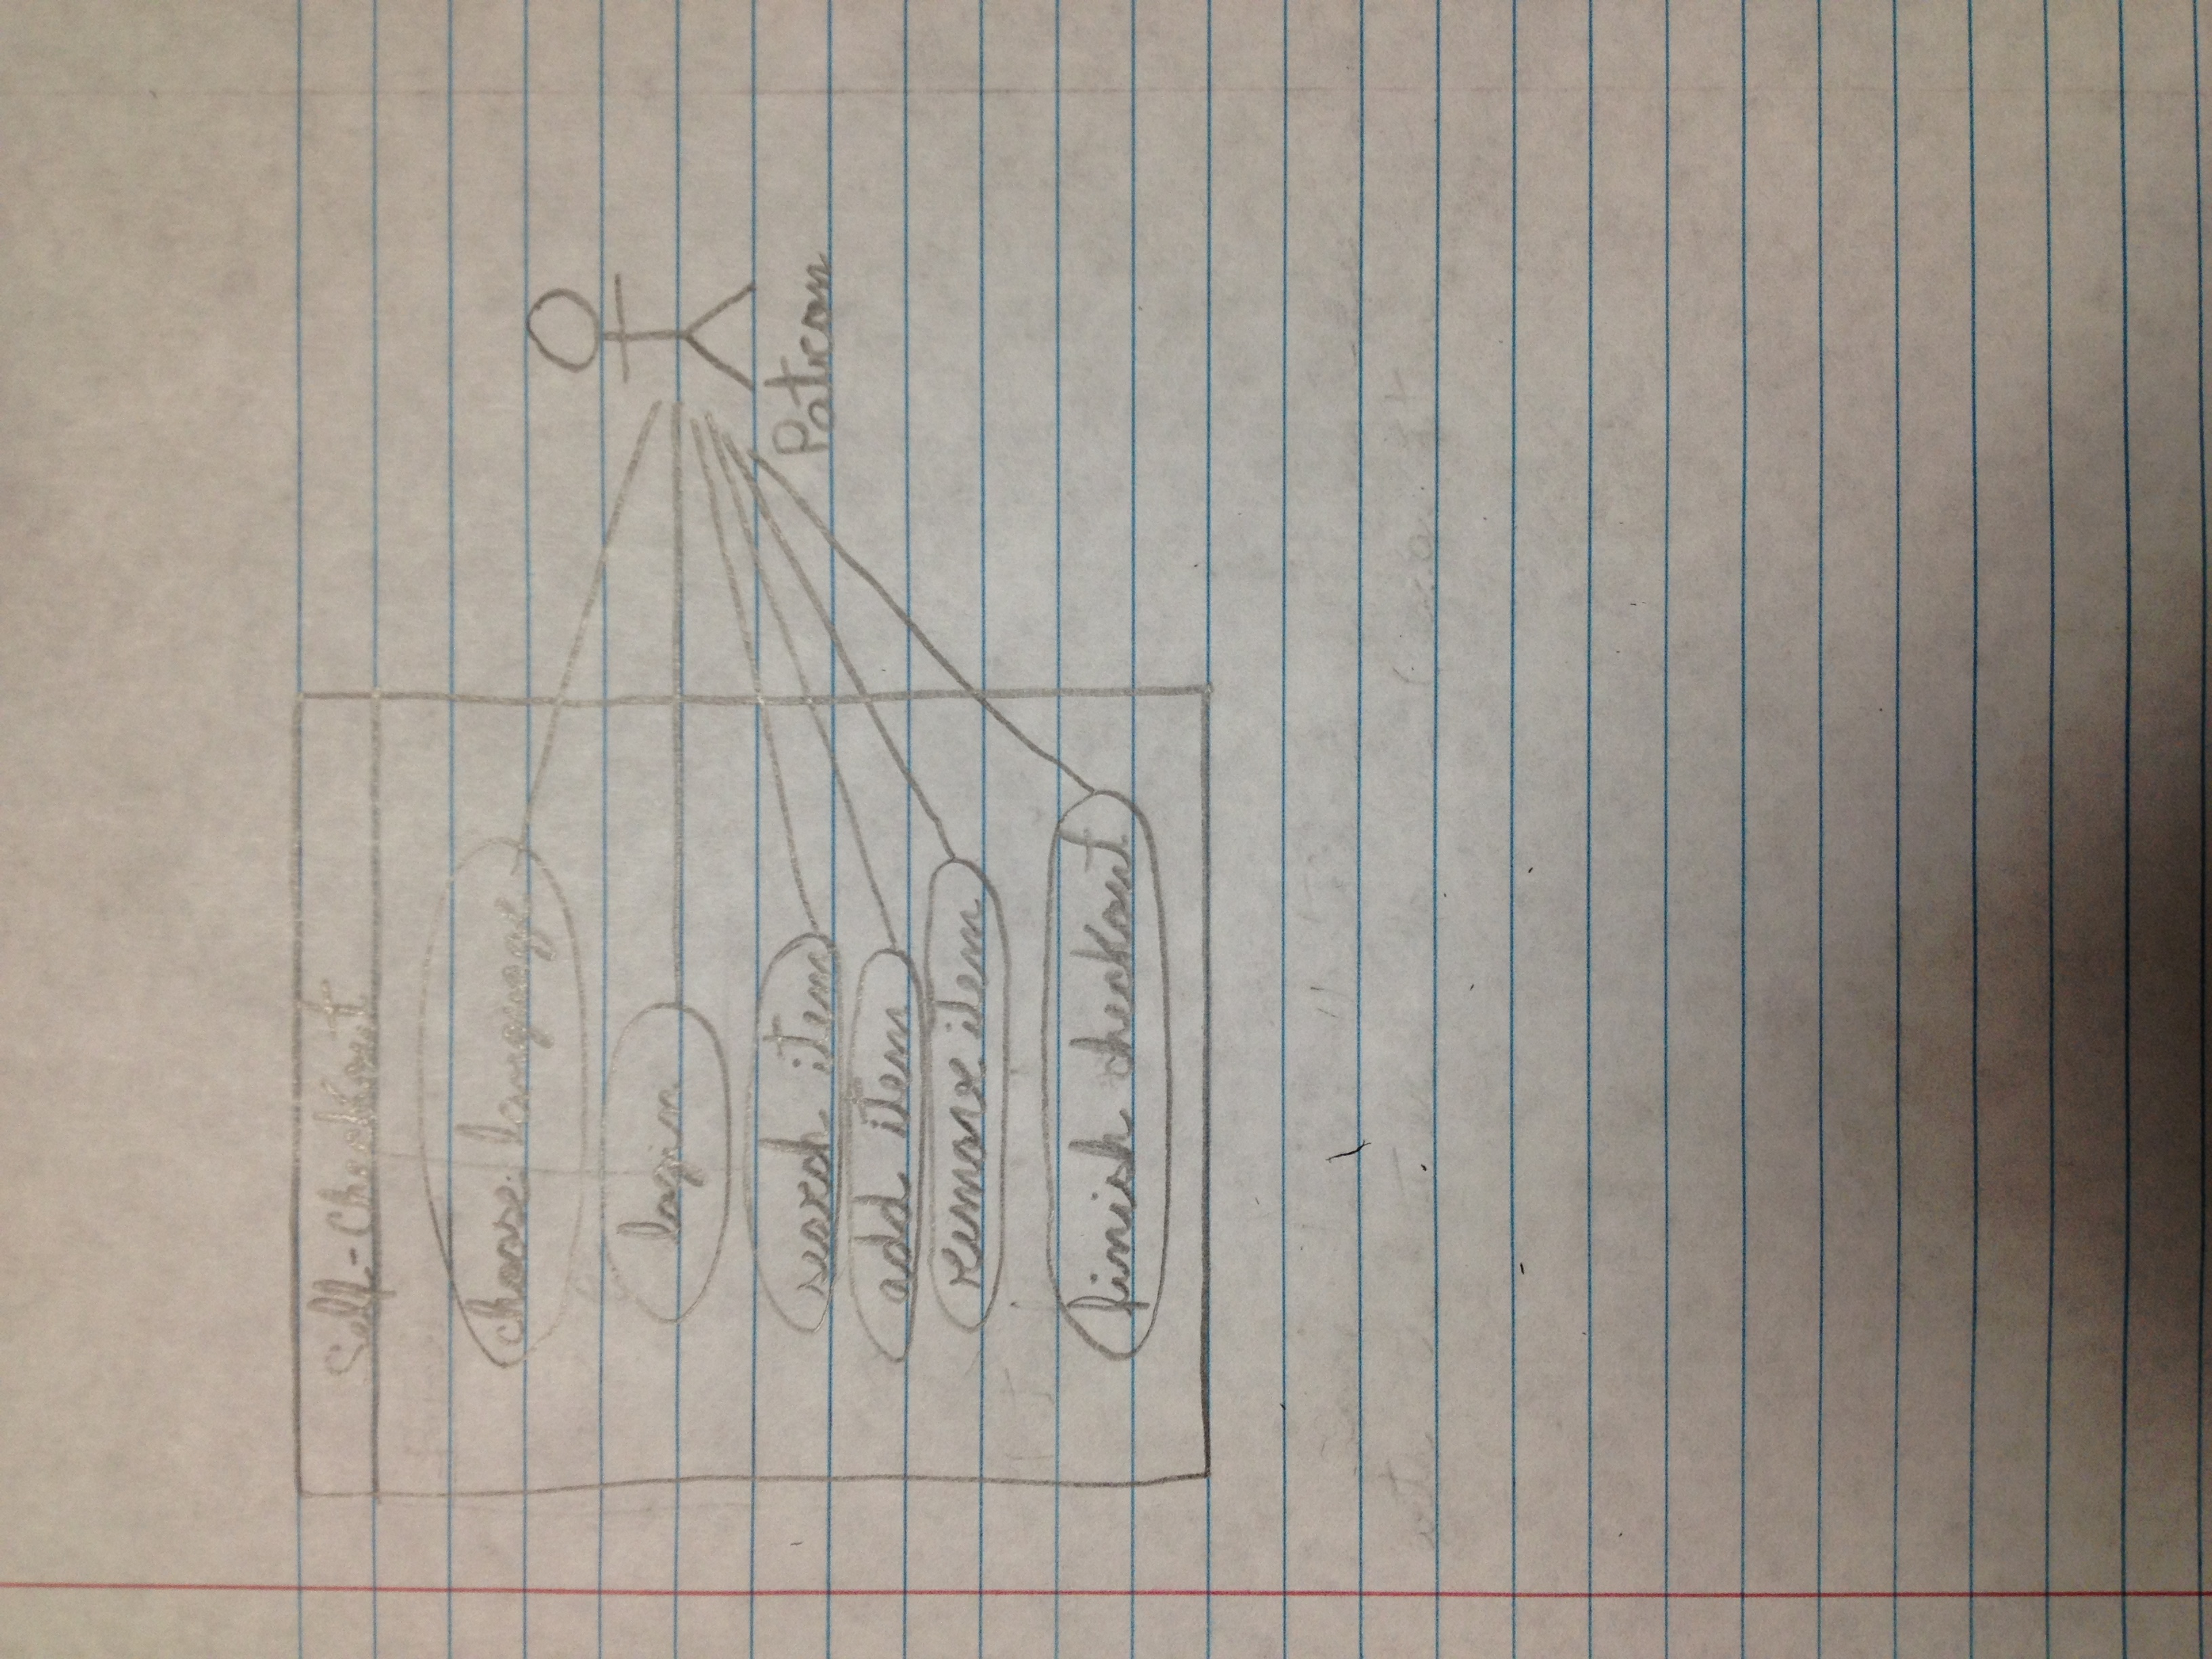 Self-Checkout
choose language
login
search item
add item
remove item
finish checkout
Patron